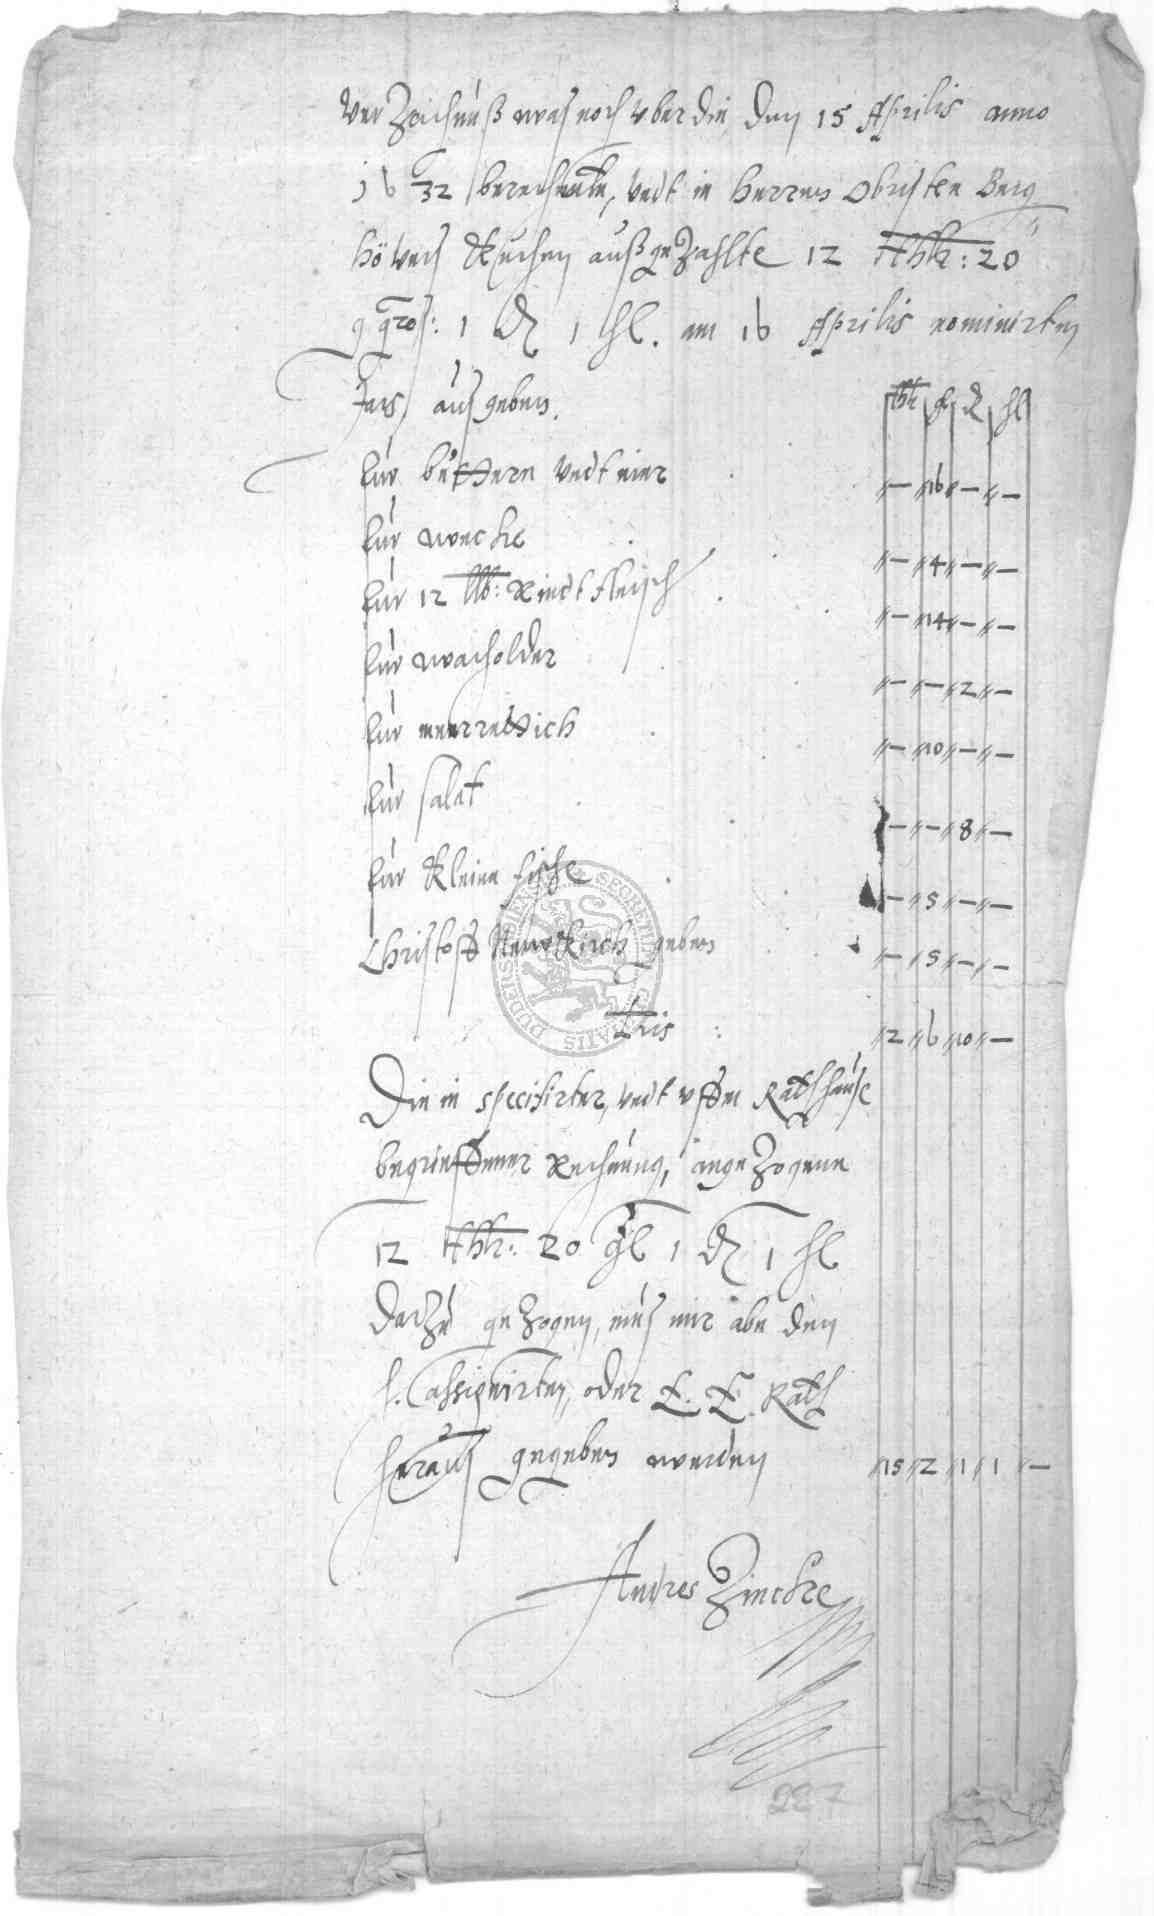 Verzeichnuß was noch vber die, den 15 Aprilis anno
1632 berechnete, vndt in Herren Obristen Berg
höwers Kuchen außgezahlte 12 thlr: 20
g gros: 1 ₰ 1 hl. am 16 Aprilis nominirten
Jars, ausgeben.
thlr gl ₰ hl
fur buttern vndt eier — 16 — —
fur wecke — 4 — —
fur 12 lb: Rindtfleisch — 14 — —
fur wacholder — — 2 —
fur meerrettich — 10 — —
fur salat — — 8 —
fur kleine fische — 5 — —
Christoff Newkirch geben — 5 — —
SECRETUM CIVITATIS DUDERSTADIENSIS
2 6 10 —
Die in specifirter, vndt vffm Rathhause
begrieffener Rechnung, angezogene
12 thlr: 20 gl 1 ₰ 1 hl
darzu gezogen, mus mir abe den
h. assignirten, oder E. E. Rath
heraus gegeben werden 15 2 11 1 —
Andres Zincke
227